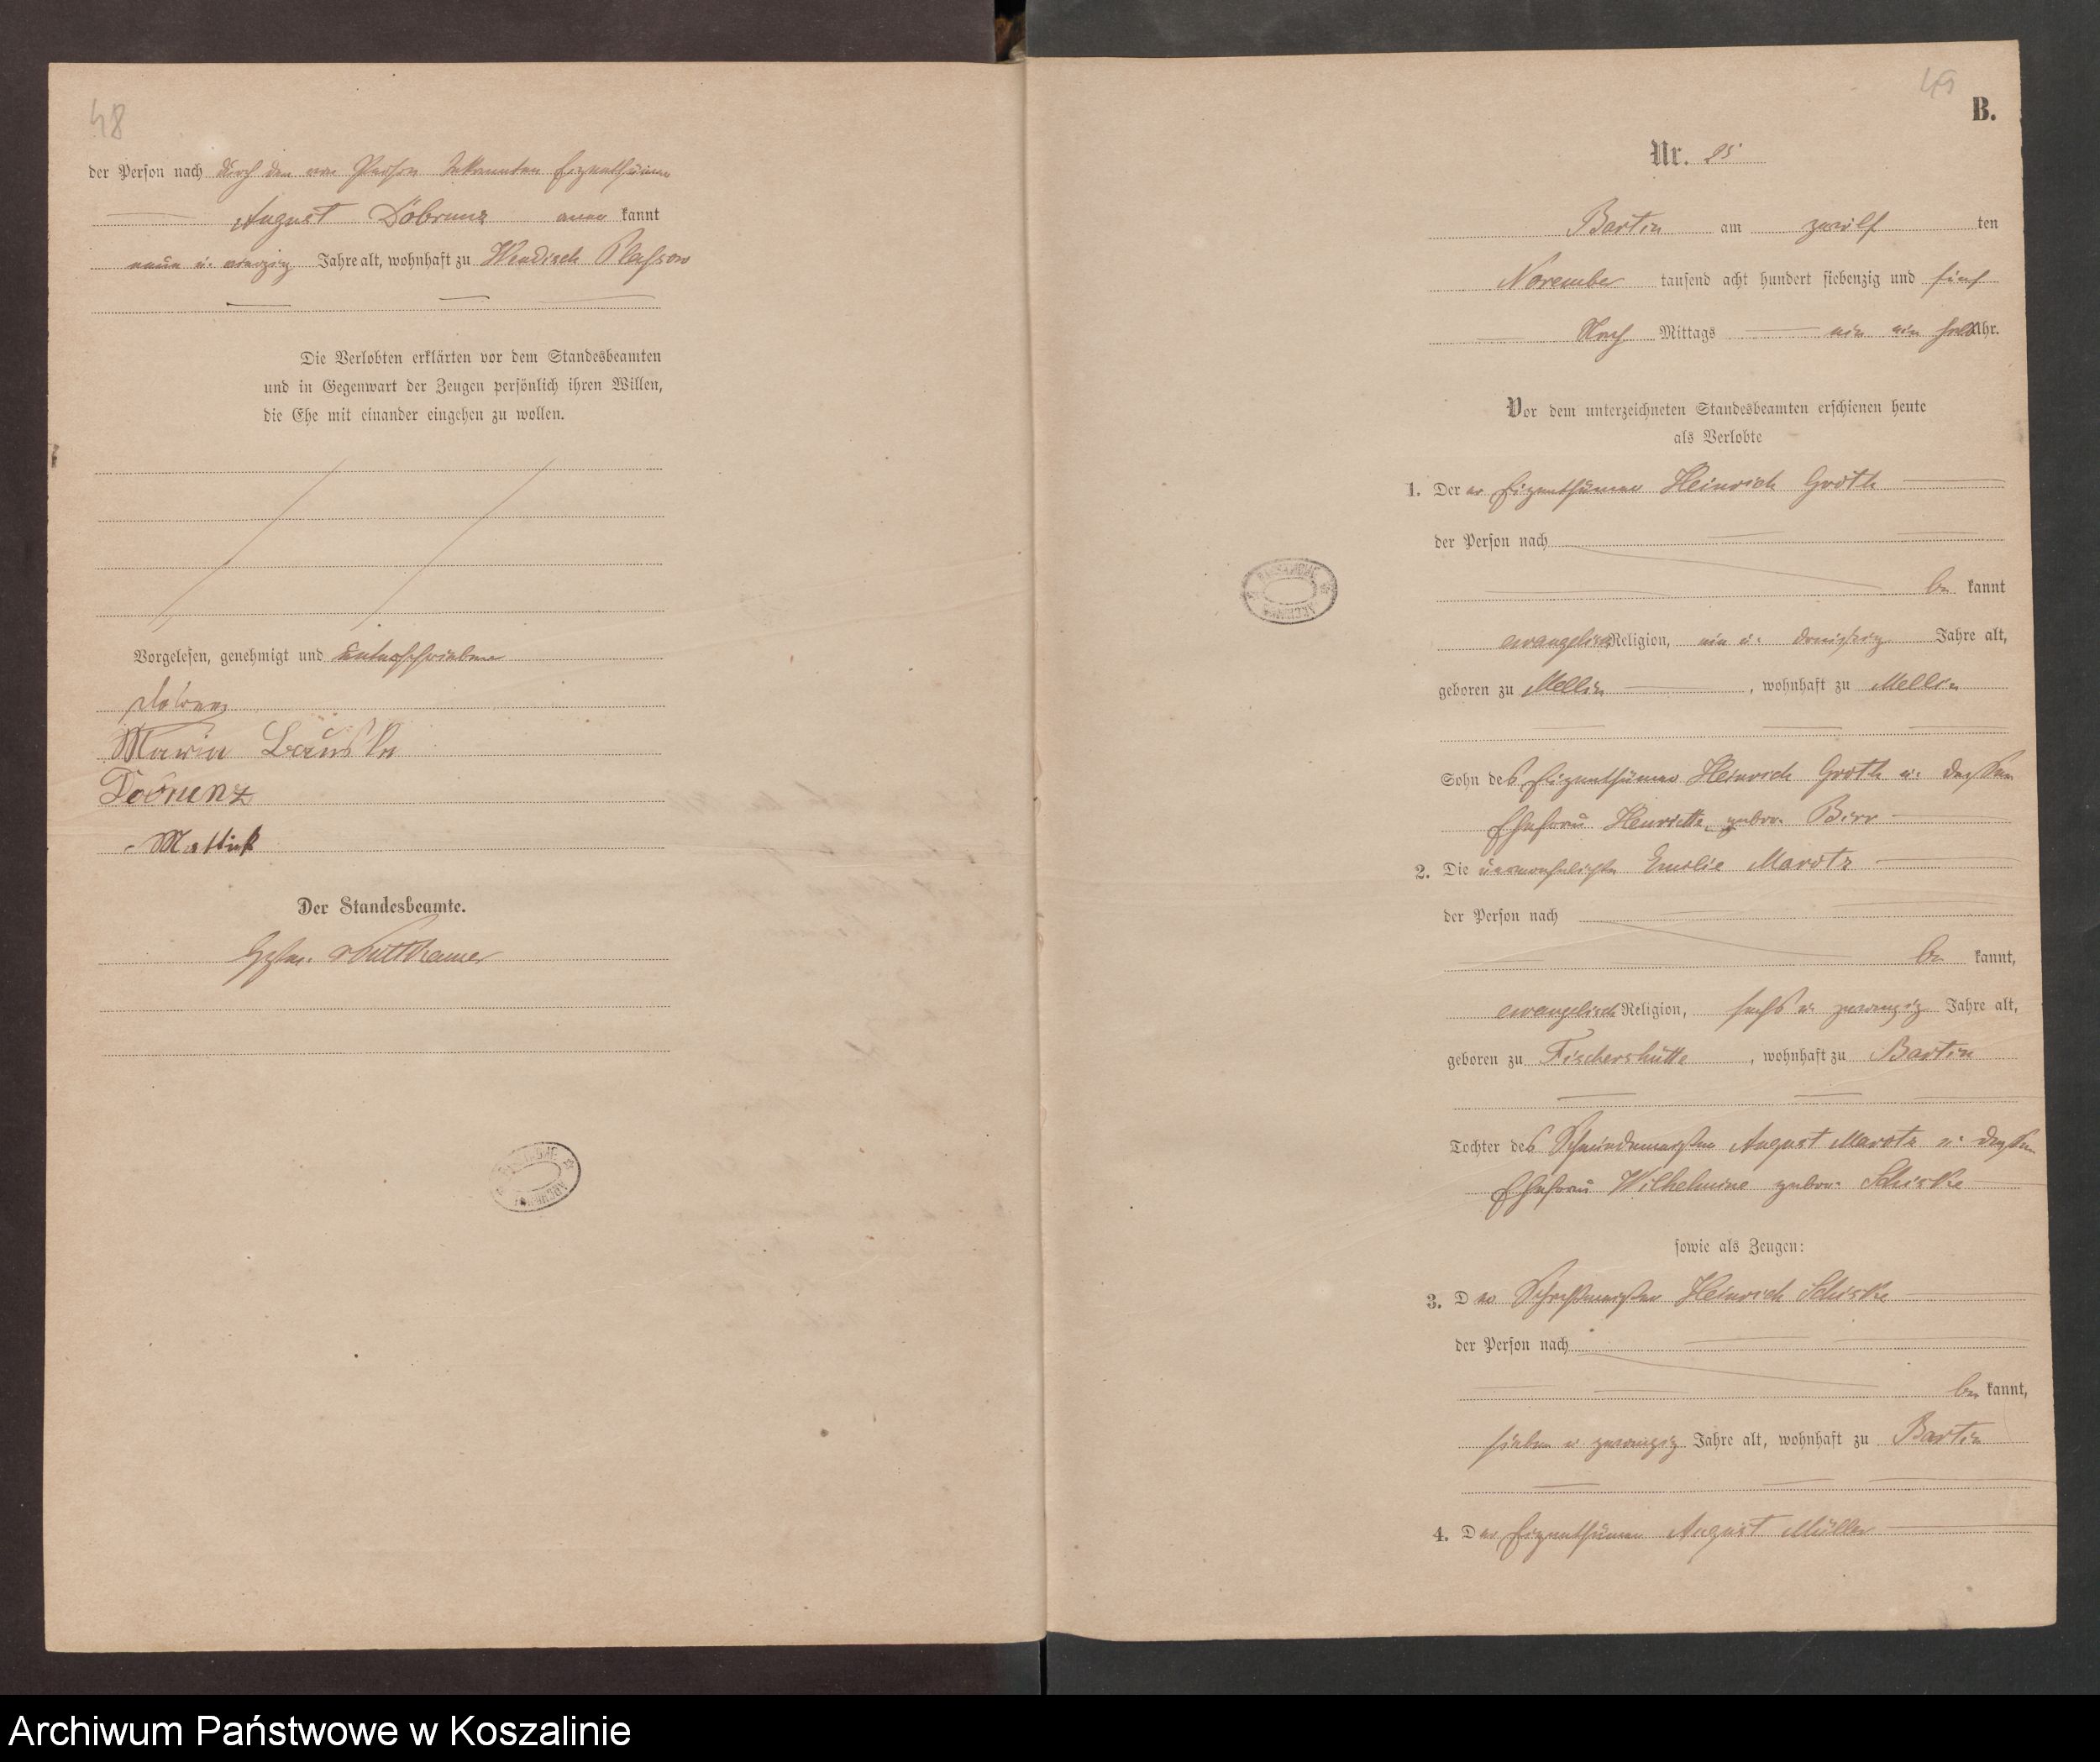 48
der Person nach durch den von Person bekannten Eigenthümer
August Döbrunz aner kannt
neun u. vierzig Jahre alt, wohnhaft zu Wendisch Plassow
Die Verlobten erklärten vor dem Standesbeamten
und in Gegenwart der Zeugen persönlich ihren Willen,
die Ehe mit einander eingehen zu wollen.
Vorgelesen, genehmigt und unterschrieben
Maria
Döbrunz
Mattick
Der Standesbeamte.
Puttkamer
49
B.
Nr. 25
Bartin am zwölf ten
November tausend acht hundert siebenzig und fünf
Nach Mittags um ein halb Uhr.
Vor dem unterzeichneten Standesbeamten erschienen heute
als Verlobte
1. Der Eigenthümer Heinrich Groth
der Person nach
be kannt
evangelisch Religion, ein u. dreißig Jahre alt,
geboren zu Mellin, wohnhaft zu Mellin
Sohn des Eigenthümer Heinrich Groth u. dessen
Ehefrau Henriette gebor. Birr
2. Die unverehelichte Emilie Marotz
der Person nach
be kannt,
evangelisch Religion, sechs u. zwanzig Jahre alt,
geboren zu Fischershütte, wohnhaft zu Bartin
Tochter des Schneidemeister August Marotz u. dessen
Ehefrau Wilhelmine gebor. Schiske
sowie als Zeugen:
3. Der Heinrich Schiske
der Person nach
be kannt,
sieben u zwanzig Jahre alt, wohnhaft zu Bartin
4. Der Eigenthümer August Müller
Archiwum Państwowe w Koszalinie